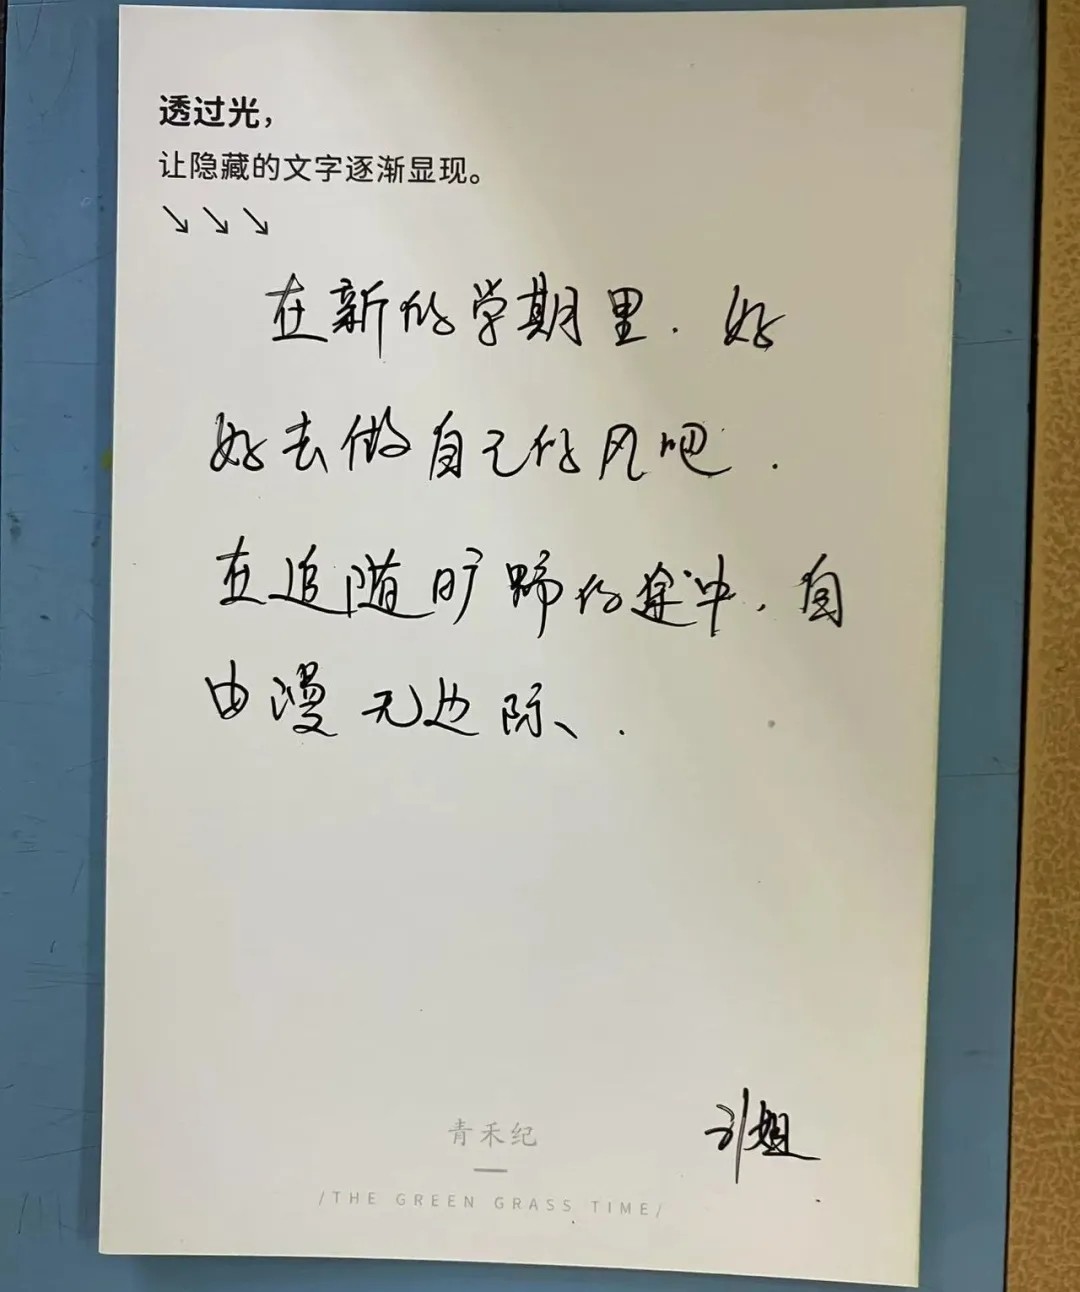 透过光，
让隐藏的文字逐渐显现。
↘↘↘
在新的学期里．好
好去做自己的风吧．
在追随旷野的途中．自
由漫无边际、．
刘姐
青禾纪
/THE GREEN GRASS TIME/